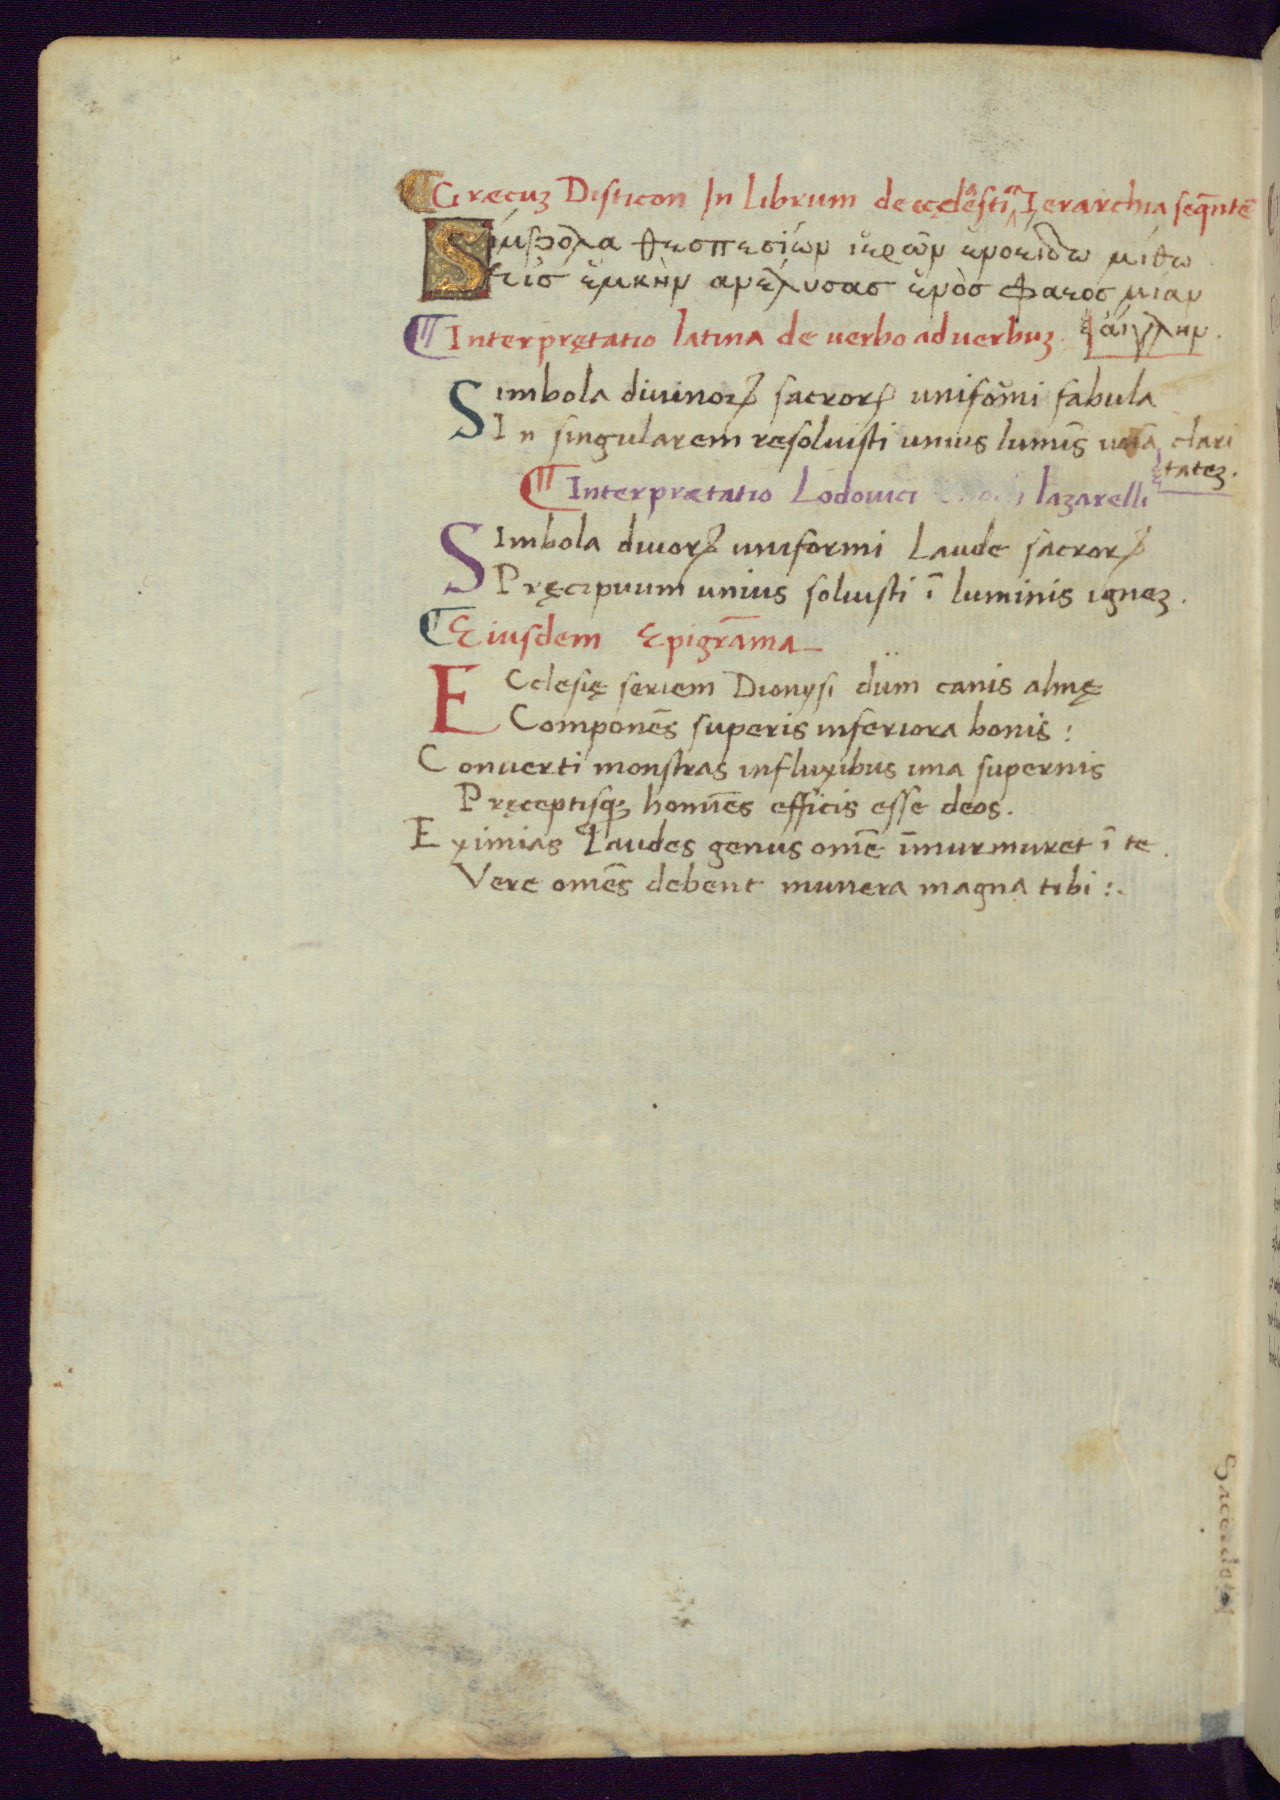 Grecuʒ Disticon In Librum de ecclesti^a^ca Ierarchia seqn̄tē
Σύμβολα θεσπεσίων ἱερῶν ενοειδέω μίθω
εἰσ ἑμκὴν ανέλυσασ ἑνὸσ φαεος μίαν
αίγλην.
Interprętatio latina de uerbo ad uerbuʒ
Simbola diuinoꝝ sacroꝝ uniformi fabula
In singularem resoluisti unius lumīs clari
tateʒ.
Interprætatio Lodouici lazarelli
SImbola diuoꝝ uniformi Laude sacroꝝ
Pręcipuum unius soluisti ī luminis igneʒ.
Eiusdem Epigrāma
ECclesię seriem Dionysi düm canis almę
Componēs superis inferiora bonis:
Conuerti monstras influxibus ima supernis
Pręceptisqꝫ homīes efficis esse deos.
Eximias Laudes genus omē īmurmuret ī te.
Vere omēs debent munera magna tibi:.